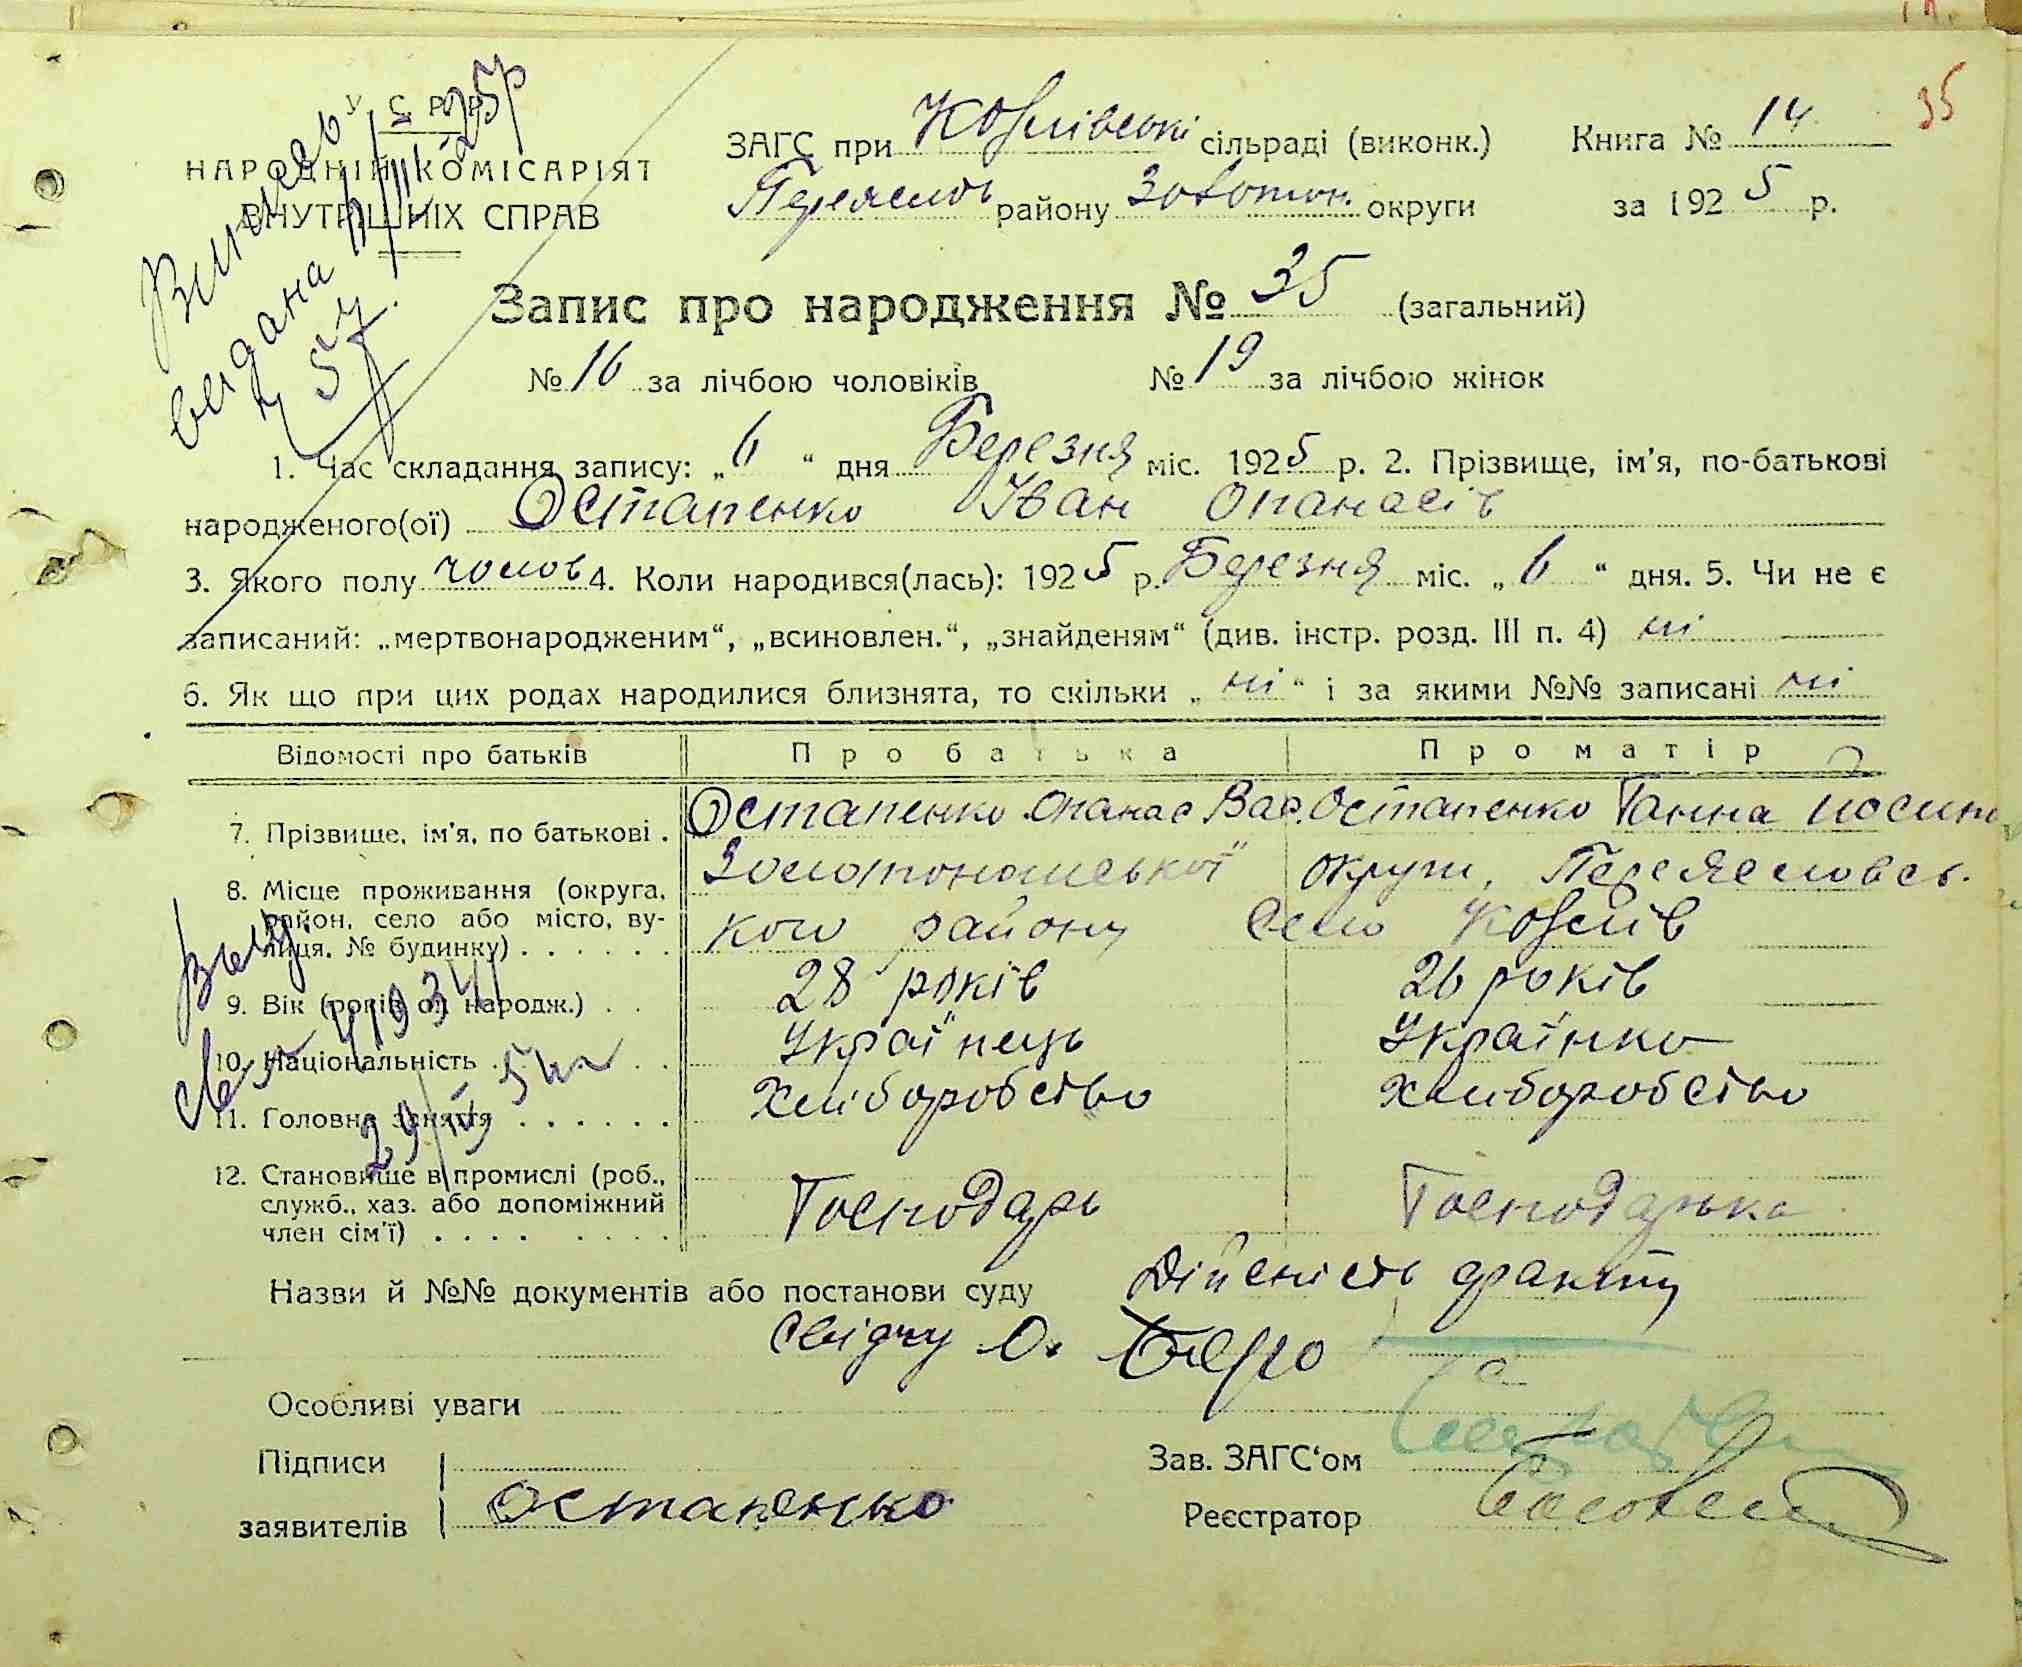 35
У. С. Р. Р.
НАРОДНІЙ КОМІСАРІЯТ
ВНУТРІШНІХ СПРАВ
Випись
видана 6/III-25р
57
ЗАГС при Козлівські сільраді (виконк.) Книга № 14
Переяслов району Золотон. округи за 1925 р.
Запис про народження № 35 (загальний)
№ 16 за лічбою чоловіків № 19 за лічбою жінок
1. Час складання запису: „6“ дня Березня міс. 1925 р. 2. Прізвище, ім'я, по-батькові
народженого(ої) Остапенко Іван Опанасів
3. Якого полу чолов 4. Коли народився(лась): 1925 р. Березня міс. „6“ дня. 5. Чи не є
записаний: „мертвонародженим“, „всиновлен.“, „знайденям“ (див. інстр. розд. III п. 4) ні
6. Як що при цих родах народилися близнята, то скільки „ні“ і за якими №№ записані ні
Відомості про батьків Про батька Про матір
7. Прізвище, ім'я, по батькові . Остапенко Опанас Вас. Остапенко Ганна Йосипо
8. Місце проживання (округа, Золотоношської округи, Переясловсь.
район, село або місто, ву-
лиця, № будинку) . . . . . . кого району Село Козлів
9. Вік (років од народж.) . . 28 років 26 років
10. Національність . . . . Українець Українка
11. Головне заняття . . . . . . Хліборобство Хліборобство
12. Становище в промислі (роб.,
служб., хаз. або допоміжний Господарь Господарька
член сім'ї) . . . . . . . .
29/IV 54
Назви й №№ документів або постанови суду Дійсність факту
свідчу О.
Особливі уваги
Підписи Зав. ЗАГС'ом
заявителів Остапенько Реєстратор